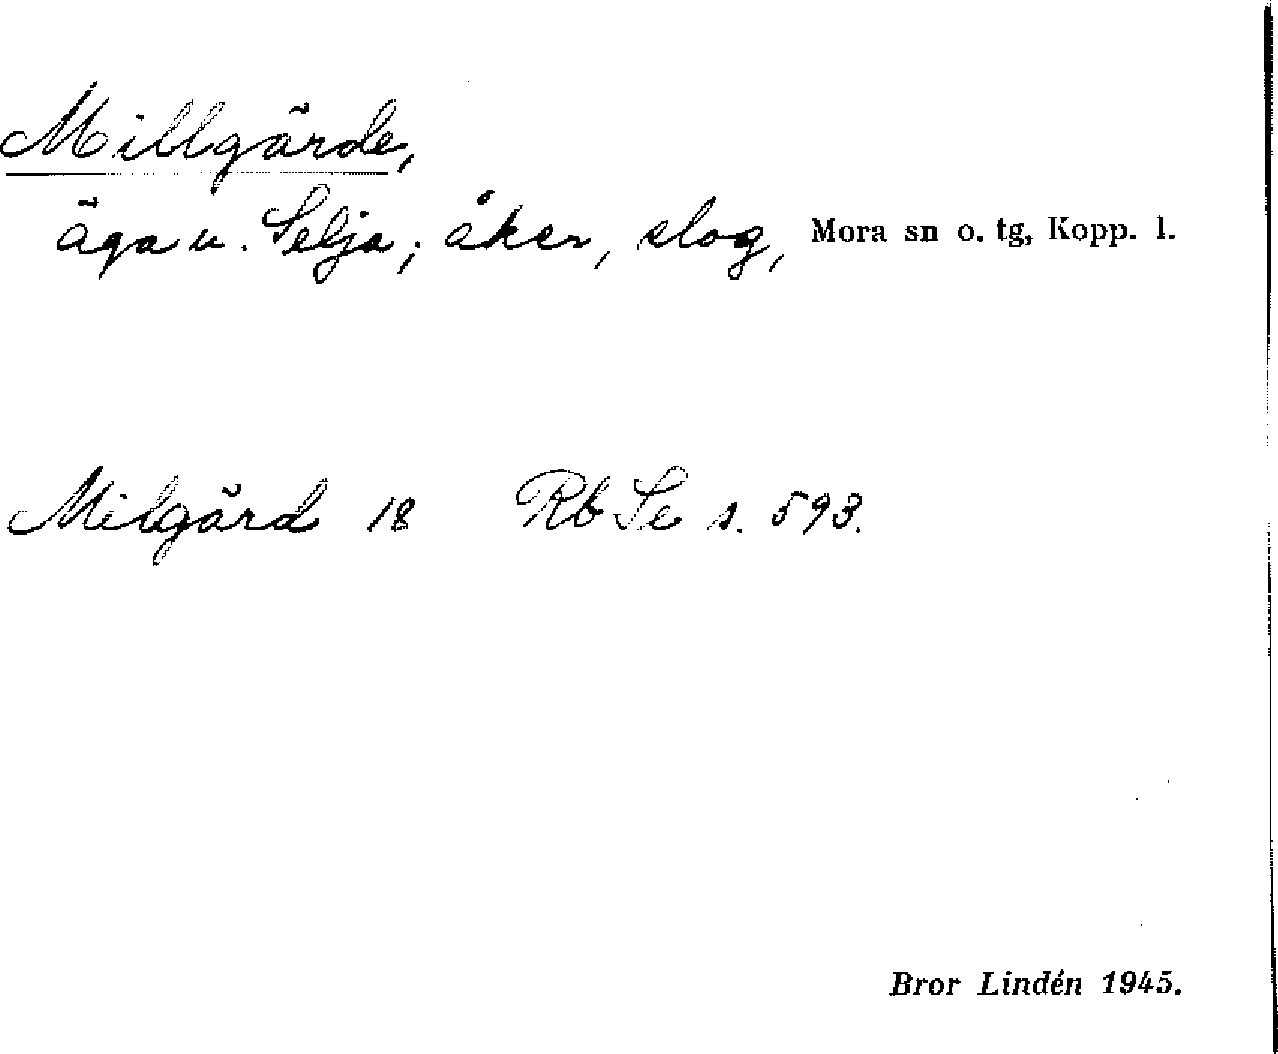 Millgärde,
äga u. Selja; åker, slog, Mora sn o. tg, Kopp. l.
Milgärd 18 Rb Se s. 593.
Bror Lindén 1945.